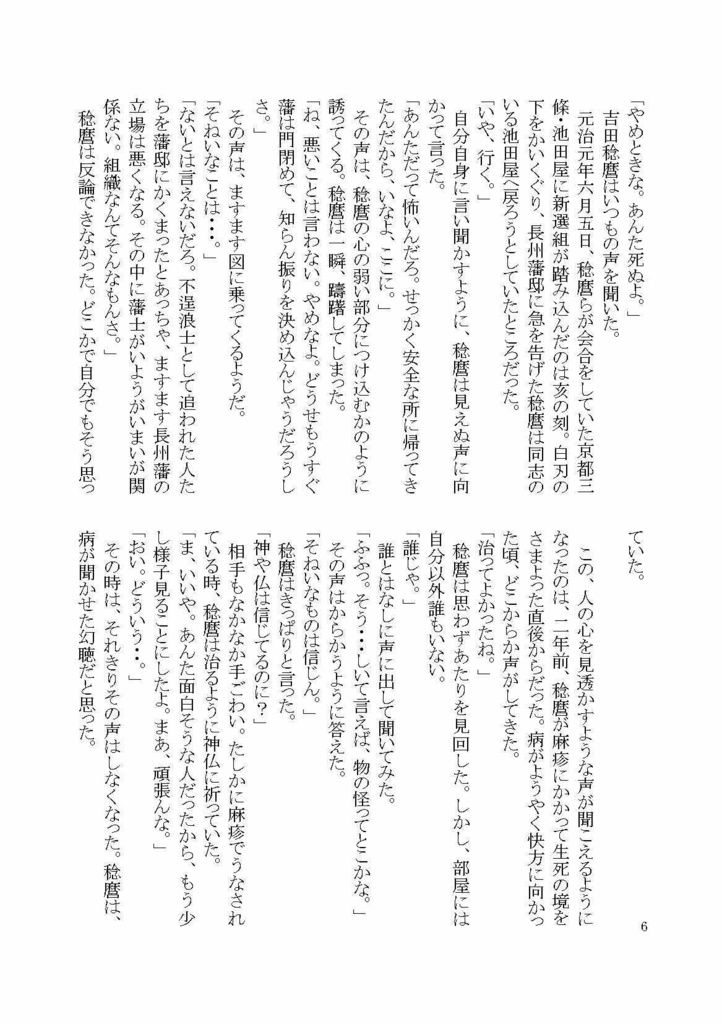 「やめときな。あんた死ぬよ。」
　吉田稔麿はいつもの声を聞いた。
　元治元年六月五日、稔麿らが会合をしていた京都三
條・池田屋に新選組が踏み込んだのは亥の刻。白刃の
下をかいくぐり、長州藩邸に急を告げた稔麿は同志の
いる池田屋へ戻ろうとしていたところだった。
「いや、行く。」
　自分自身に言い聞かすように、稔麿は見えぬ声に向
かって言った。
「あんただって怖いんだろ。せっかく安全な所に帰ってき
たんだから、いなよ、ここに。」
　その声は、稔麿の心の弱い部分につけ込むかのように
誘ってくる。稔麿は一瞬、躊躇してしまった。
「ね、悪いことは言わない。やめなよ。どうせもうすぐ
藩は門閉めて、知らん振りを決め込んじゃうだろうし
さ。」
　その声は、ますます図に乗ってくるようだ。
「そねいなことは・・・。」
「ないとは言えないだろ。不逞浪士として追われた人た
ちを藩邸にかくまったとあっちゃ、ますます長州藩の
立場は悪くなる。その中に藩士がいようがいまいが関
係ない。組織なんてそんなもんさ。」
　稔麿は反論できなかった。どこかで自分でもそう思っ
ていた。
　この、人の心を見透かすような声が聞こえるように
なったのは、二年前、稔麿が麻疹にかかって生死の境を
さまよった直後からだった。病がようやく快方に向かっ
た頃、どこからか声がしてきた。
「治ってよかったね。」
　稔麿は思わずあたりを見回した。しかし、部屋には
自分以外誰もいない。
「誰じゃ。」
　誰とはなしに声に出して聞いてみた。
「ふふっ。そう・・・しいて言えば、物の怪ってとこかな。」
　その声はからかうように答えた。
「そねいなものは信じん。」
　稔麿はきっぱりと言った。
「神や仏は信じてるのに？」
　相手もなかなか手ごわい。たしかに麻疹でうなされ
ている時、稔麿は治るように神仏に祈っていた。
「ま、いいや。あんた面白そうな人だったから、もう少
し様子見ることにしたよ。まあ、頑張んな。」
「おい。どういう・・。」
　その時は、それきりその声はしなくなった。稔麿は、
病が聞かせた幻聴だと思った。
6